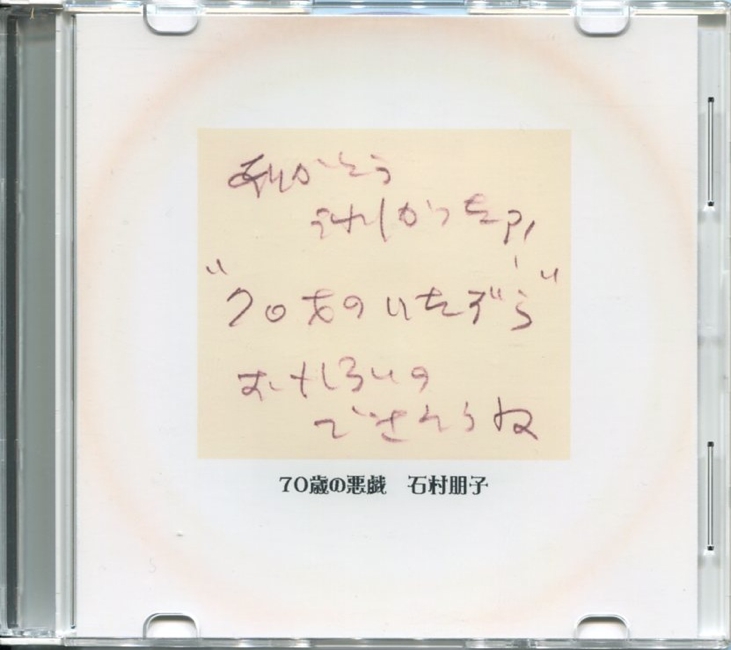 ありがとう
うれしかったァ!
"70才のいたずら"
おもしろいの
できそうね
70歳の悪戯 石村朋子